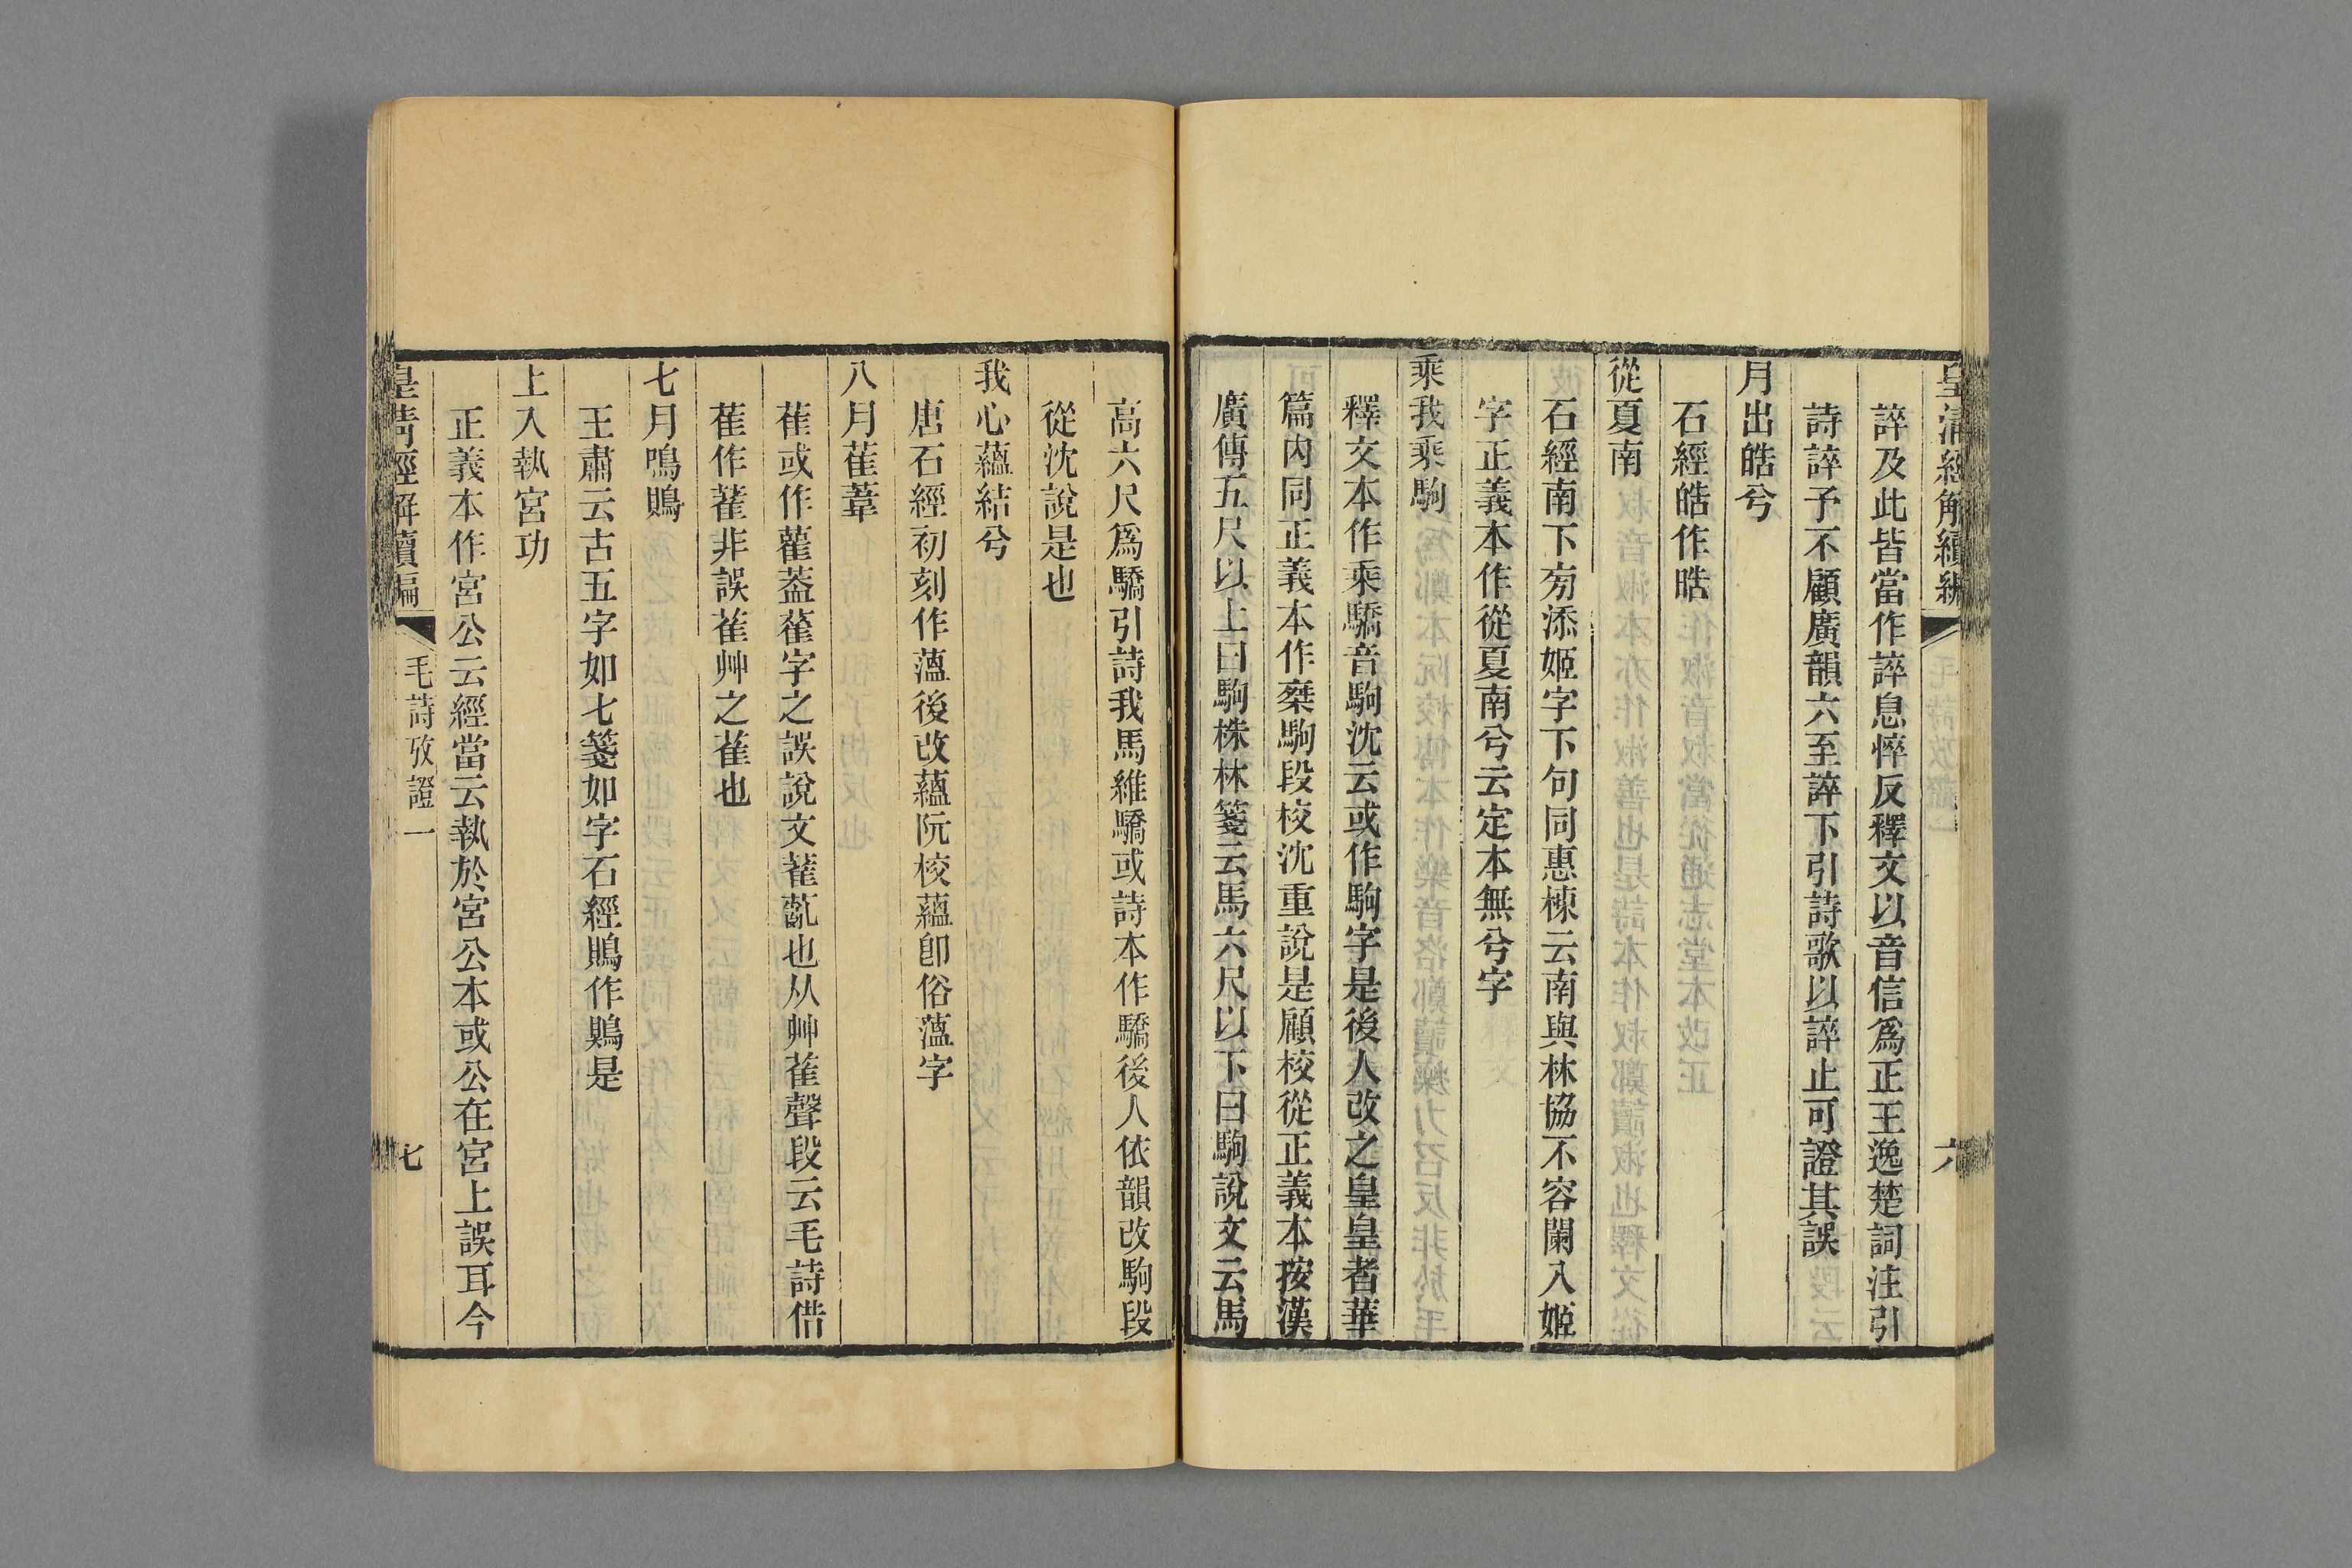 皇清經解續編
六
誶及此皆當作誶息悴反釋文以音信爲正王逸楚詞注引
詩誶予不顧廣韻六至誶下引詩歌以誶止可證其誤
月出皓兮
石經皓作晧
從夏南
石經南下旁添姬字下句同惠棟云南與林協不容闌入姬
字正義本作從夏南兮云定本無兮字
乘我乘駒
釋文本作乘驕音駒沈云或作駒字是後人改之皇皇者華
篇内同正義本作椉駒段校沈重說是顧校從正義本按漢
廣傳五尺以上曰駒株林箋云馬六尺以下曰駒說文云馬
高六尺爲驕引詩我馬維驕或詩本作驕後人依韻改駒段
從沈說是也
我心蘊結兮
唐石經初刻作薀後改蘊阮校蘊卽俗薀字
八月萑葦
萑或作雚葢雈字之誤說文萑薍也从艸萑聲段云毛詩借
萑作雈非誤萑艸之萑也
七月鳴鵙
王肅云古五字如七箋如字石經鵙作鶪是
上入執宮功
正義本作宮公云經當云執於宮公本或公在宮上誤耳今
皇清經解續編
毛詩攷證一
七